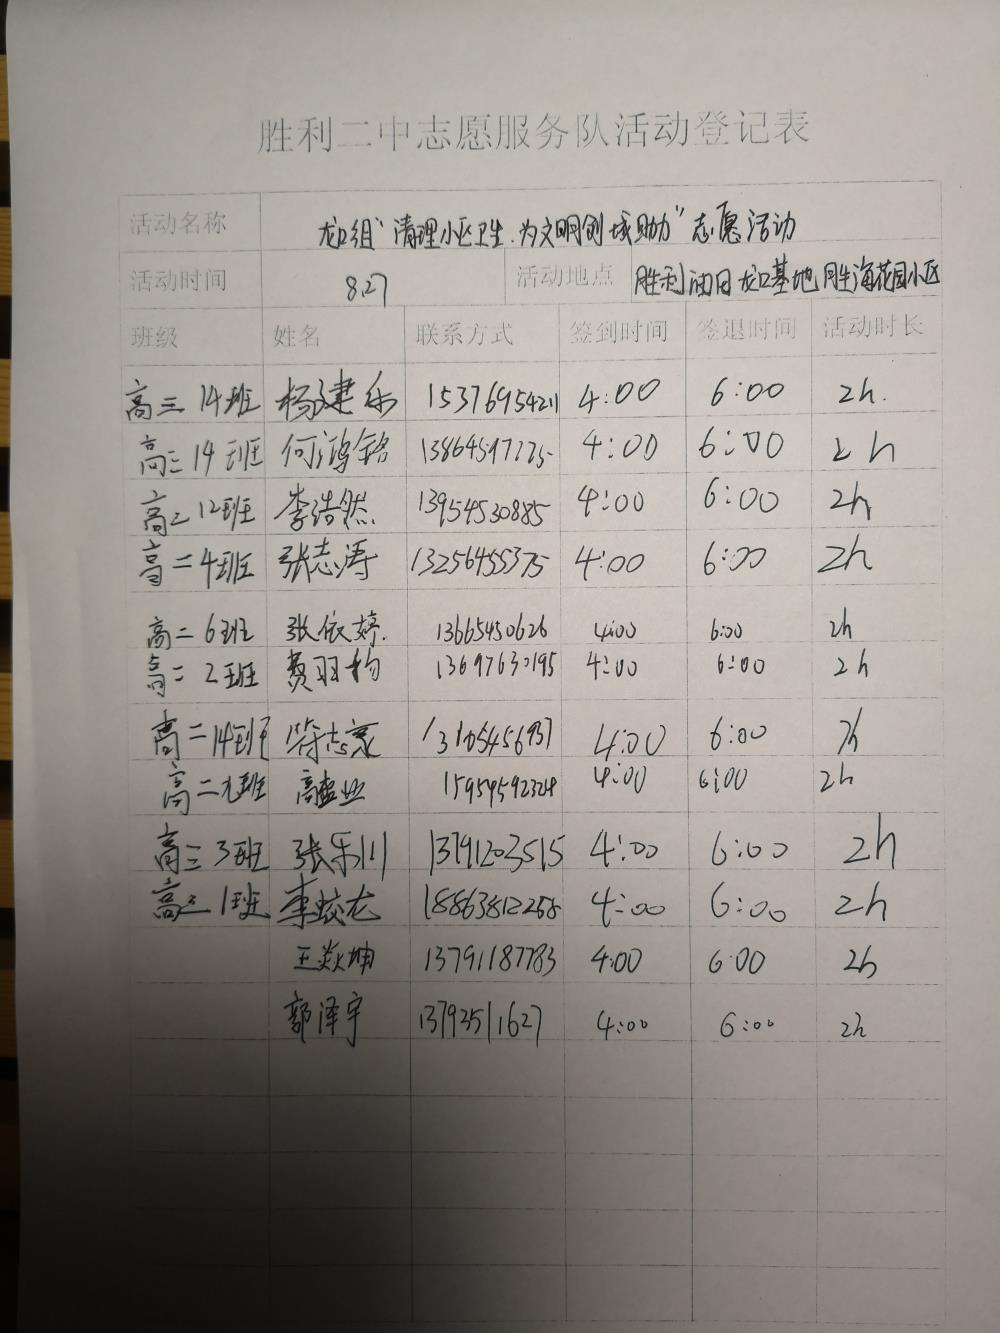 胜利二中志愿服务队活动登记表
活动名称 龙口组“清理小区卫生.为文明创城助力”志愿活动
活动时间 8.27 活动地点 胜利油田龙口基地 海花园小区
班级 姓名 联系方式 签到时间 签退时间 活动时长
高三 14班 杨建乐 15376954211 4:00 6:00 2h.
高三 14班 何鸿铭 4:00 6:00 2h
12班 李浩然 13954530885 4:00 6:00 2h
高二 4班 张志涛 13256455375 4:00 6:00 2h
高二 6班 张依婷. 13665450626 4:00 6:00 2h
高二 2班 费羽 4:00 6:00 2h
高二 14班 志豪 4:00 6:00 2h
高二 班 高 业 4:00 6:00 2h
高三 3班 张乐川 13791203515 4:00 6:00 2h
1班 李蛟龙 18863812258 4:00 6:00 2h
王焱坤 13791187783 4:00 6:00 2h
郭泽宇 13793511627 4:00 6:00 2h